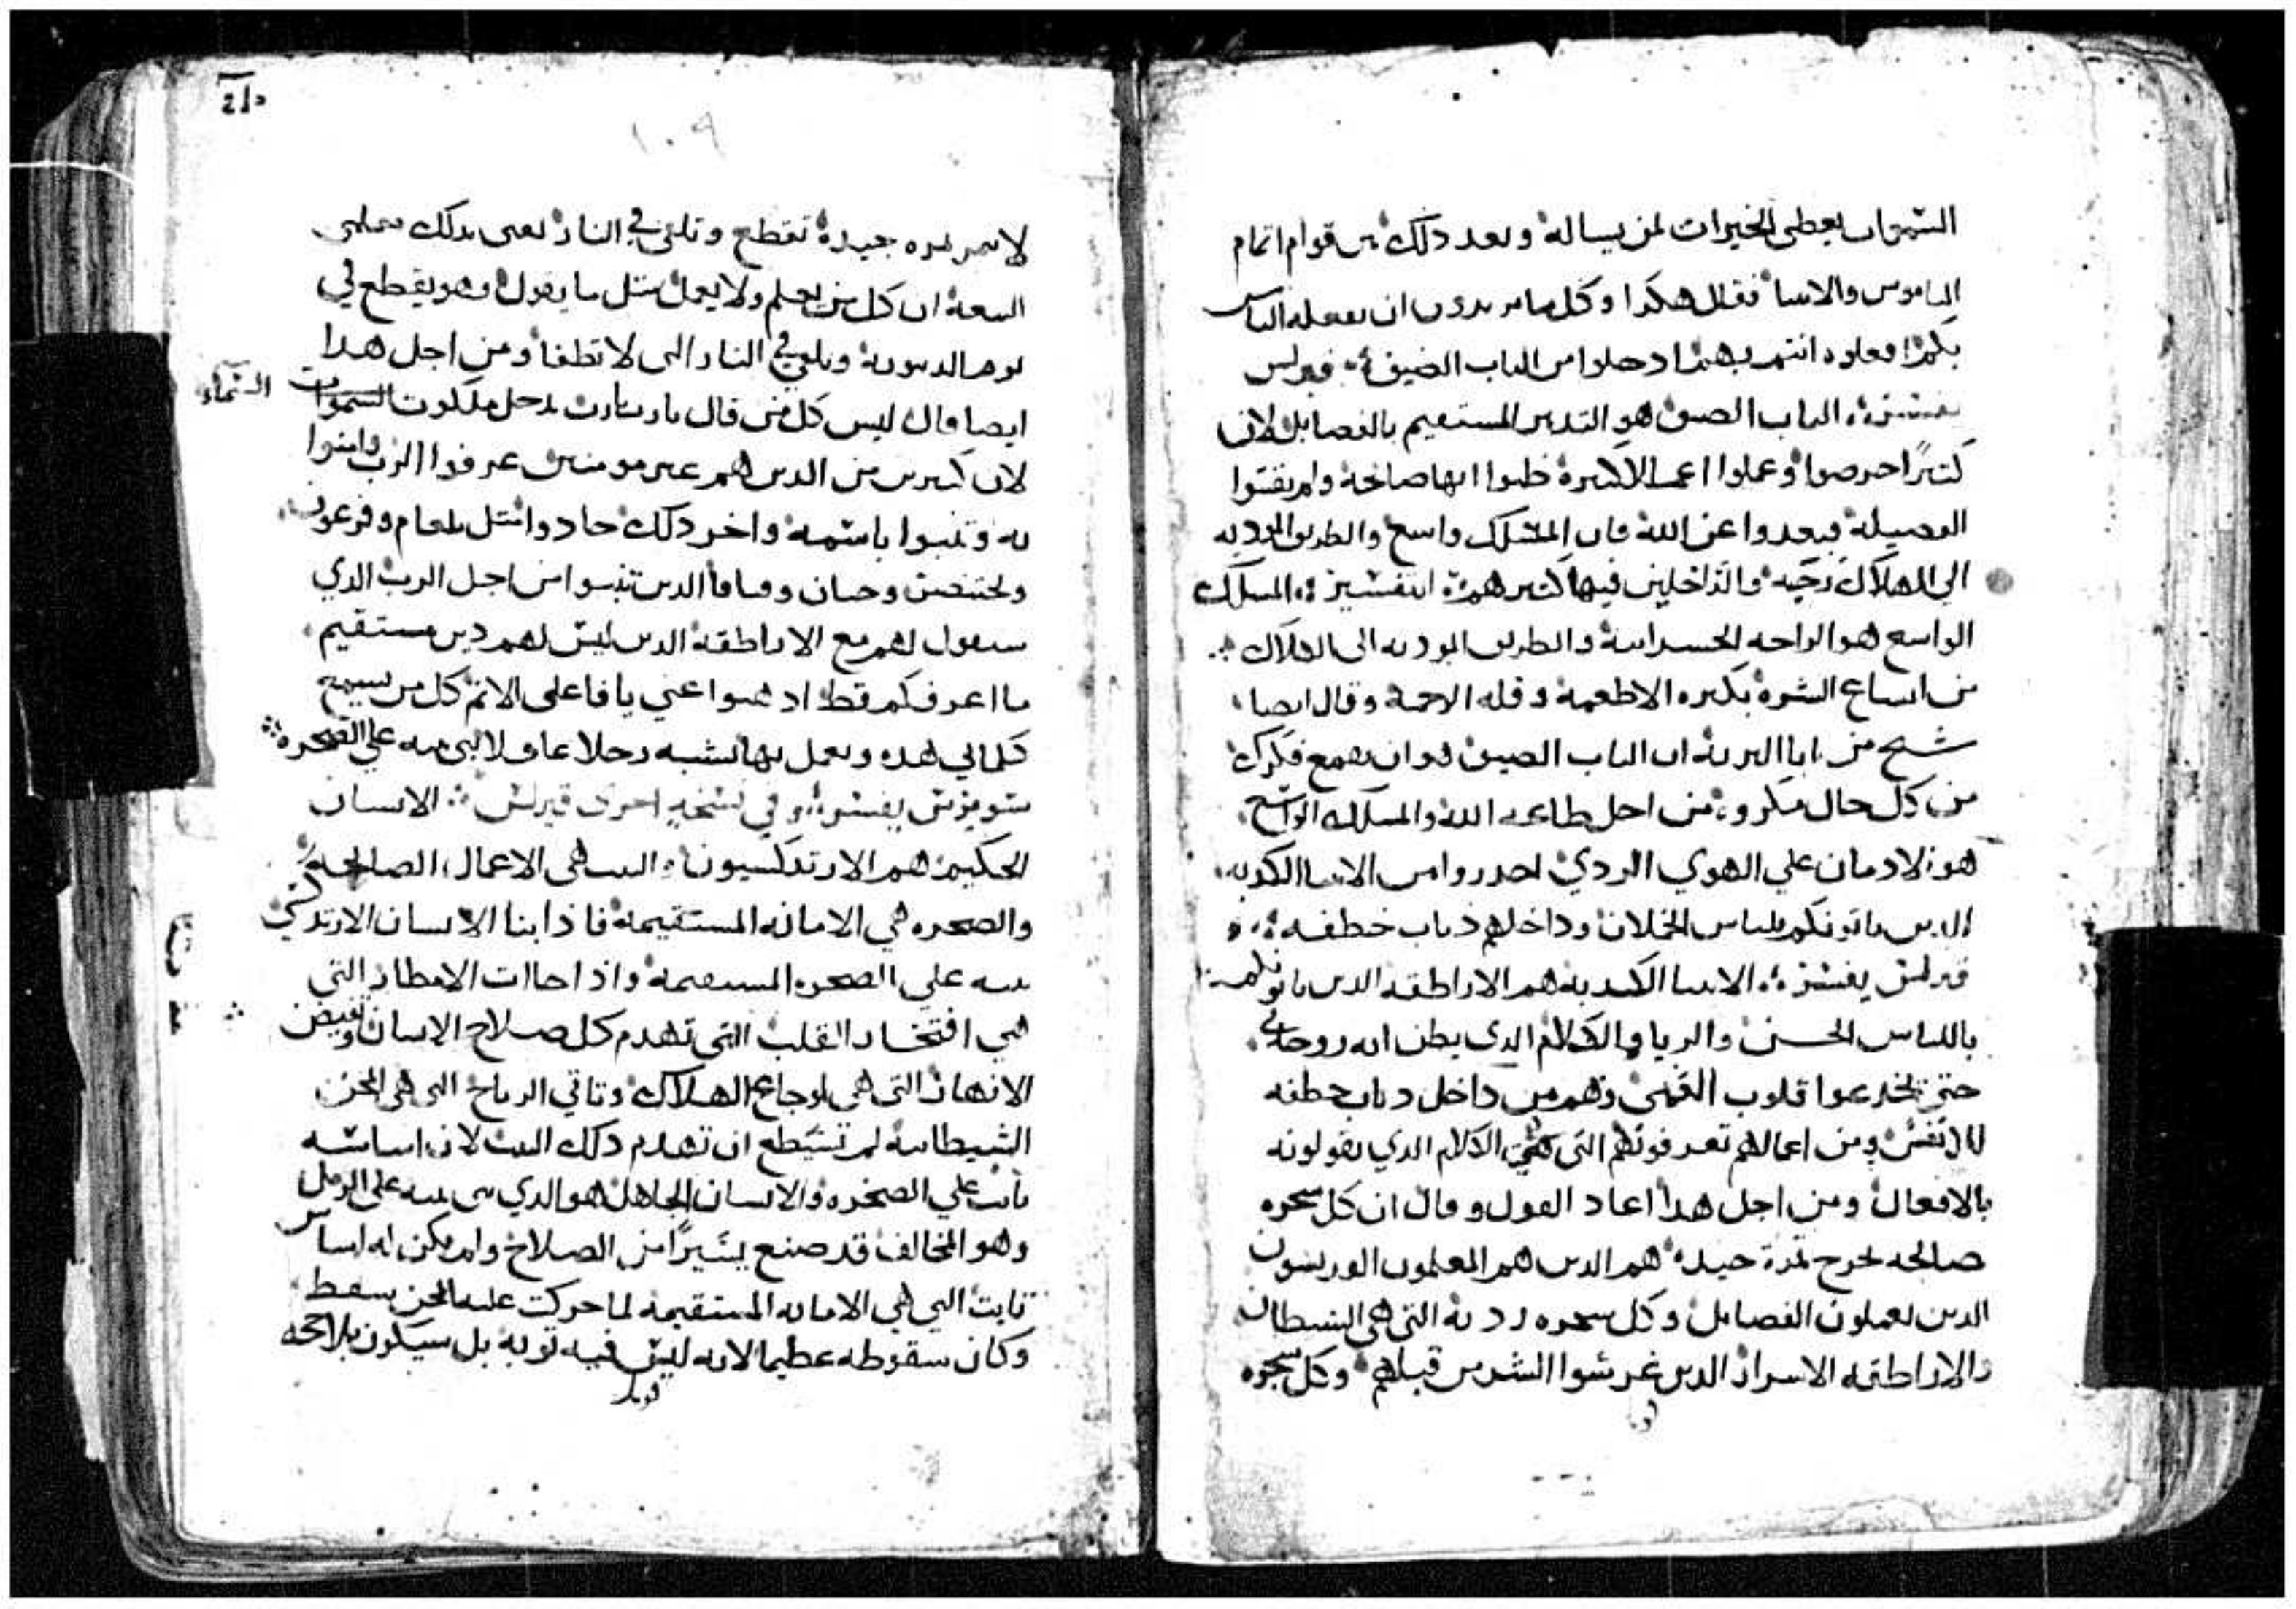 السموات يعطي الخيرات لمن يساله وبعد ذلك من قوام اتمام
الناموس والانبيا فقال هكدا وكل ما تريدون ان يفعله الناس
بكم افعلوه انتم بهم ادخلوا من الباب الضيق قيرلس
يفسر الباب الضيق هو التدبير المستقيم بالفضايل لان
كثيرًا حرصوا وعملوا اعمالا كثيرة ظنوا انها صالحة ولم يقتنوا
الفضيلة فبعدوا عن الله فان المسلك واسع والطريق المودية
الي الهلاك رحبه والداخلين فيها كثير هم التفسير المسلك
الواسع هو الراحه الجسدانية والطريق المودية الى الهلاك
من اتساع الشره بكثرة الاطعمة وقلة الرحمة وقال ايضا
شيخ من ابا البرية ان الباب الضيق هو ان تجمع فكرك
من كل حال مكروه من اجل طاعة الله والمسلك الواسع
هو الادمان علي الهوي الردي احدروا من الانبيا الكدبه
الدين ياتونكم بلباس الحملان وداخلهم دياب خطفه
قيرلس يفسر الانبيا الكدبة هم الاراطقه الدين ياتونكم
باللباس الحسن والريا والكلام الدي يظن انه روحاني
حتى يخدعوا قلوب الفهمين وهم من داخل دياب خطفه
للانفس ومن اعمالهم تعرفونهم التى هي الكلام الدي يقولونه
بالافعال ومن اجل هدا اعاد القول وقال ان كل شجره
صالحه تخرج ثمرة جيدة هم الدين هم المعلمون
الدين يعملون الفضايل وكل شجره ردية التى هي الشيطان
والاراطقه الاسرار الدين غرسوا الشر من قبلهم وكل شجره
١٠٩
لا تثمر ثمره جيدة تقطع وتلقى في النار يعنى بدلك معلمى
البيعة ان كل من يعلم ولا يعمل مثل ما يقول فهو يقطع في
يوم الدينونة ويلقى في النار التى لا تطفا ومن اجل هدا
ايضا قال ليس كل من قال يارب يارب يدخل ملكوت السموات
السماء
لان كثيرين من الدين هم غير مومنين عرفوا الرب وامنوا
به وتنبوا باسمه واخر دلك حادوا مثل بلعام وفرعون
وبختنصر وحنان وقيافا الدين تنبوا من اجل الرب الدي
سيقول لهم مع الاراطقه الدين ليس لهم دين مستقيم
ما اعرفكم قط ادهبوا عني يا فاعلى الاثم كل من يسمع
كلماتي هده ويعمل بها يشبه رجلا عاقلا بنى بيته علي الصخره
سويرس يفسر وفي نسخة اخرى قيرلس الانسان
الحكيم هم الارتدكسيون البيت هي الاعمال الصالحة
والصخره هي الامانه المستقيمة فاذا بنا الانسان الارتدكسي
بيته علي الصخره المستقيمة واذا جاات الامطار التي
هي افتخار القلب التي تهدم كل صلاح الانسان وتفيض
الانهار التى هي اوجاع الهلاك وتاتي الرياح التى هي المحن
الشيطانية لم تستطع ان تهدم دلك البيت لان اساسه
ثابت علي الصخره والانسان الجاهل هو الدي بنى بيته على الرمل
وهو المخالف قد صنع يسيرًا من الصلاح ولم يكن له اساس
ثابت التي هي الامانه المستقيمة لما حركت عليه المحن سقط
وكان سقوطه عظيما لانه ليس فيه توبه بل سيكون بلا راحه